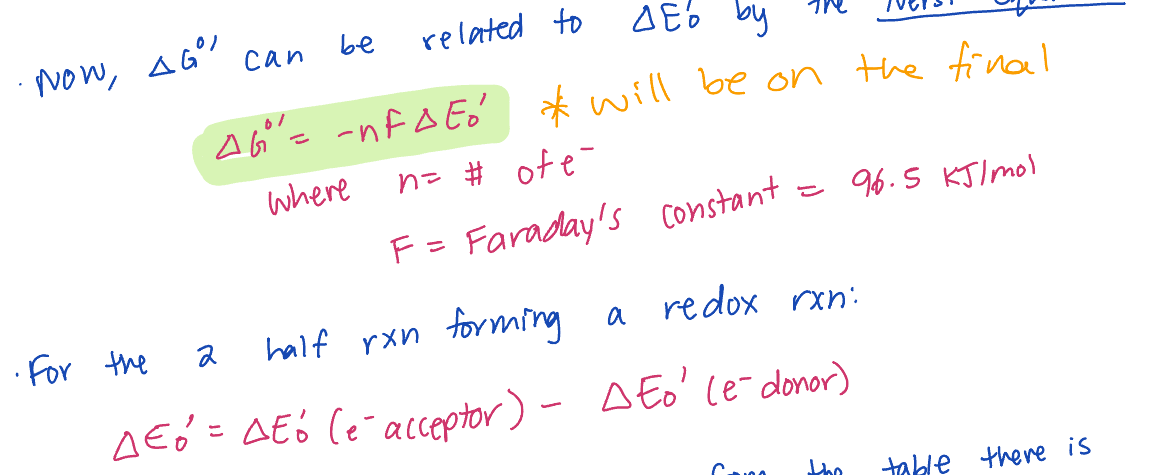 · Now, ΔG°' can be related to ΔE₀' by the
ΔG°' = -nFΔE₀' * will be on the final
where n= # of e⁻
F = Faraday's constant = 96.5 KJ/mol
· For the 2 half rxn forming a redox rxn:
ΔE₀' = ΔE₀' (e⁻ acceptor) - ΔE₀' (e⁻ donor)
the table there is